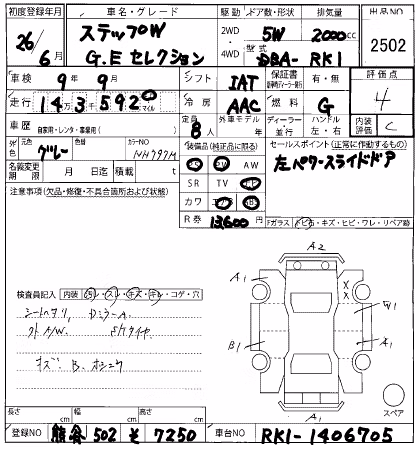 初度登録年月 車名・グレード 駆動 ドア数・形状 排気量 出品NO
26 6月 ステップW G.Eセレクション 2WD 4WD 5W 2000cc 2502
型式 DBA-RK1
車検 9年9月 シフト IAT 保証書 有・無 評価点
走行 143,592 km マイル 冷房 AAC 燃料 G 4
車歴 自家用・レンタ・事業用( ) 定員 8人 外車モデル 年式 ディーラー・並行 ハンドル 左・右 内装評価 C
外色 元色 グレー 色替 カラーNO NH797M 装備品(純正品に限る) セールスポイント(正常に作動するもの)
名義変更期限 月 日迄 積載 t PS PW AW 左パワースライドドア
注意事項(欠品・修復・不具合箇所および状態) SR TV ナビ
カワ
R券 13,600円 Fガラス トビ石・キズ・ヒビ・ワレ・リペア跡
A2
A1 X X W1
検査員記入 内装 汚レ・スレ・キズ・キレ・コゲ・穴
シートヘタリ、DミラーA
外A/W
キズ B
B1 A1
A1 スペア
長さ cm 幅 cm 高さ cm
登録NO 熊谷 502 そ 7250 車台NO RK1-1406705